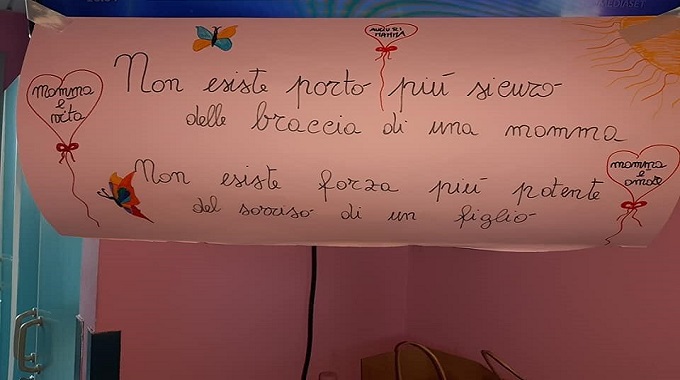 MEDIASET
AUGURI
MAMMA
Non esiste porto più sicuro
delle braccia di una mamma
mamma
è
vita
Non esiste forza più potente
del sorriso di un figlio
mamma
è
amore